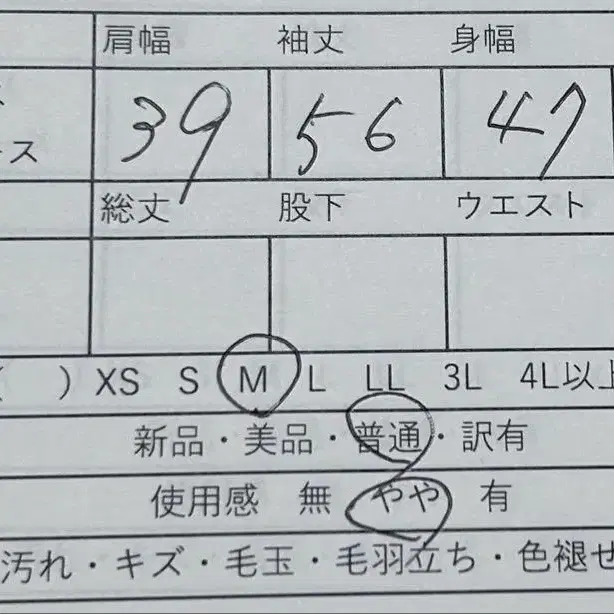 肩幅 袖丈 身幅
39 56 47
ース
総丈 股下 ウエスト
( ) XS S M L LL 3L 4L以上
新品・美品・普通・訳有
使用感 無 やや 有
汚れ・キズ・毛玉・毛羽立ち・色褪せ